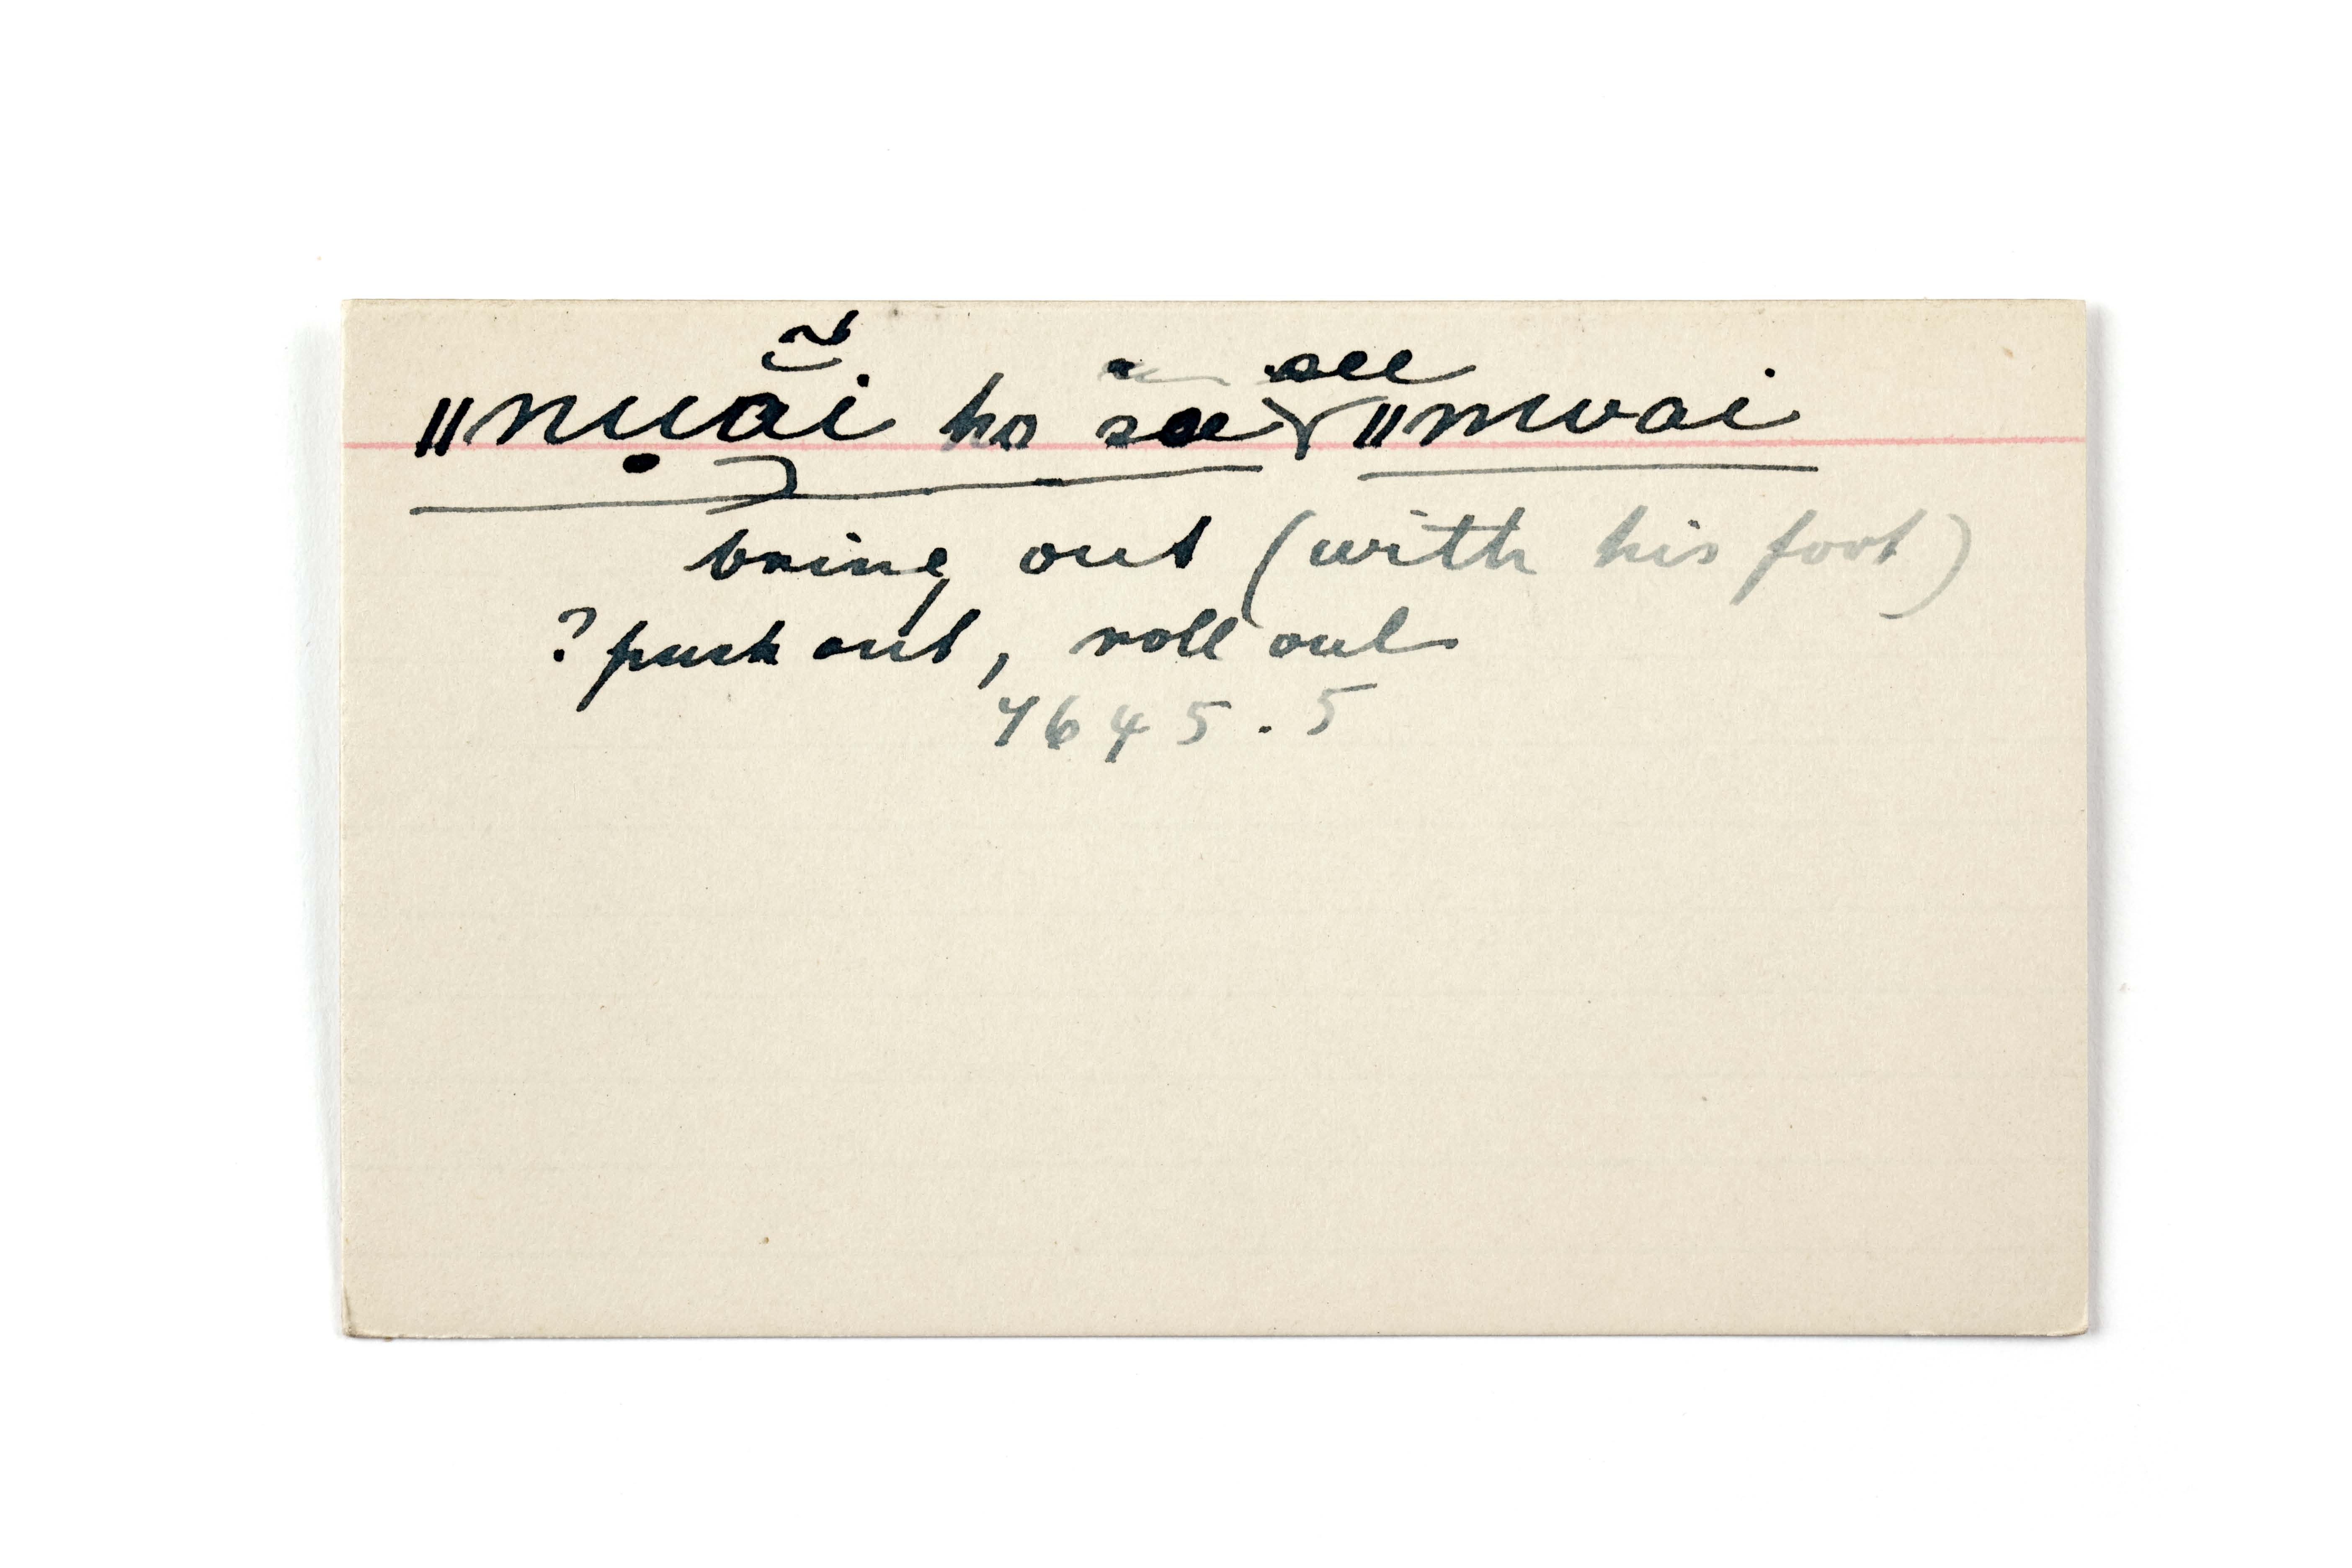 see
ǁnu̥ãi ho sae ǁnwai
bring out (with his foot)
? push out, roll out
7645.5